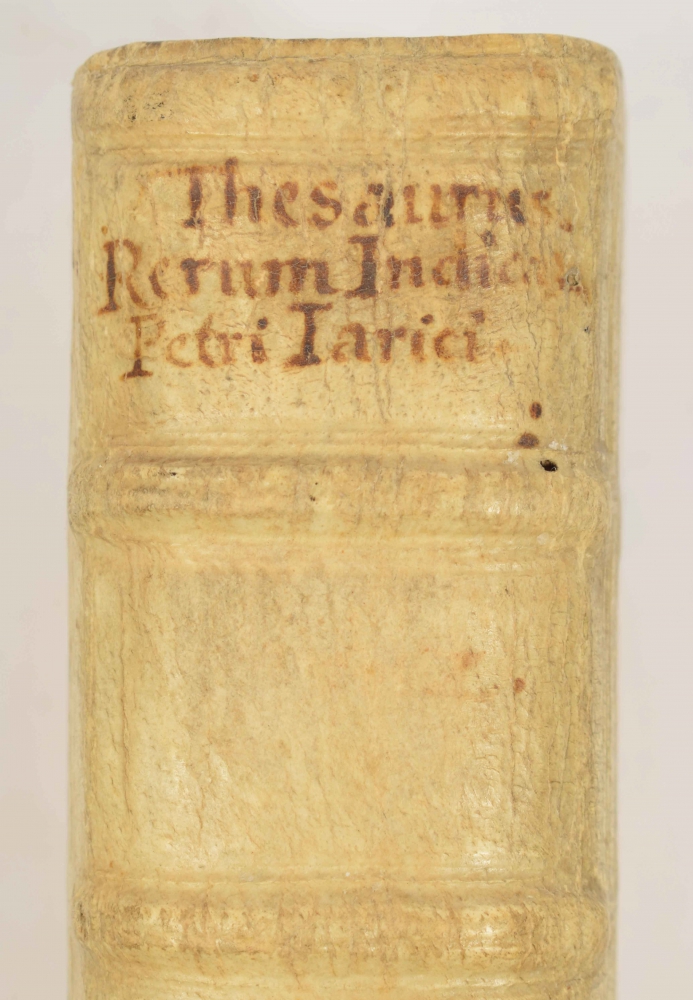 Thesaurus.
Rerum Indicar.
Petri Iarici.